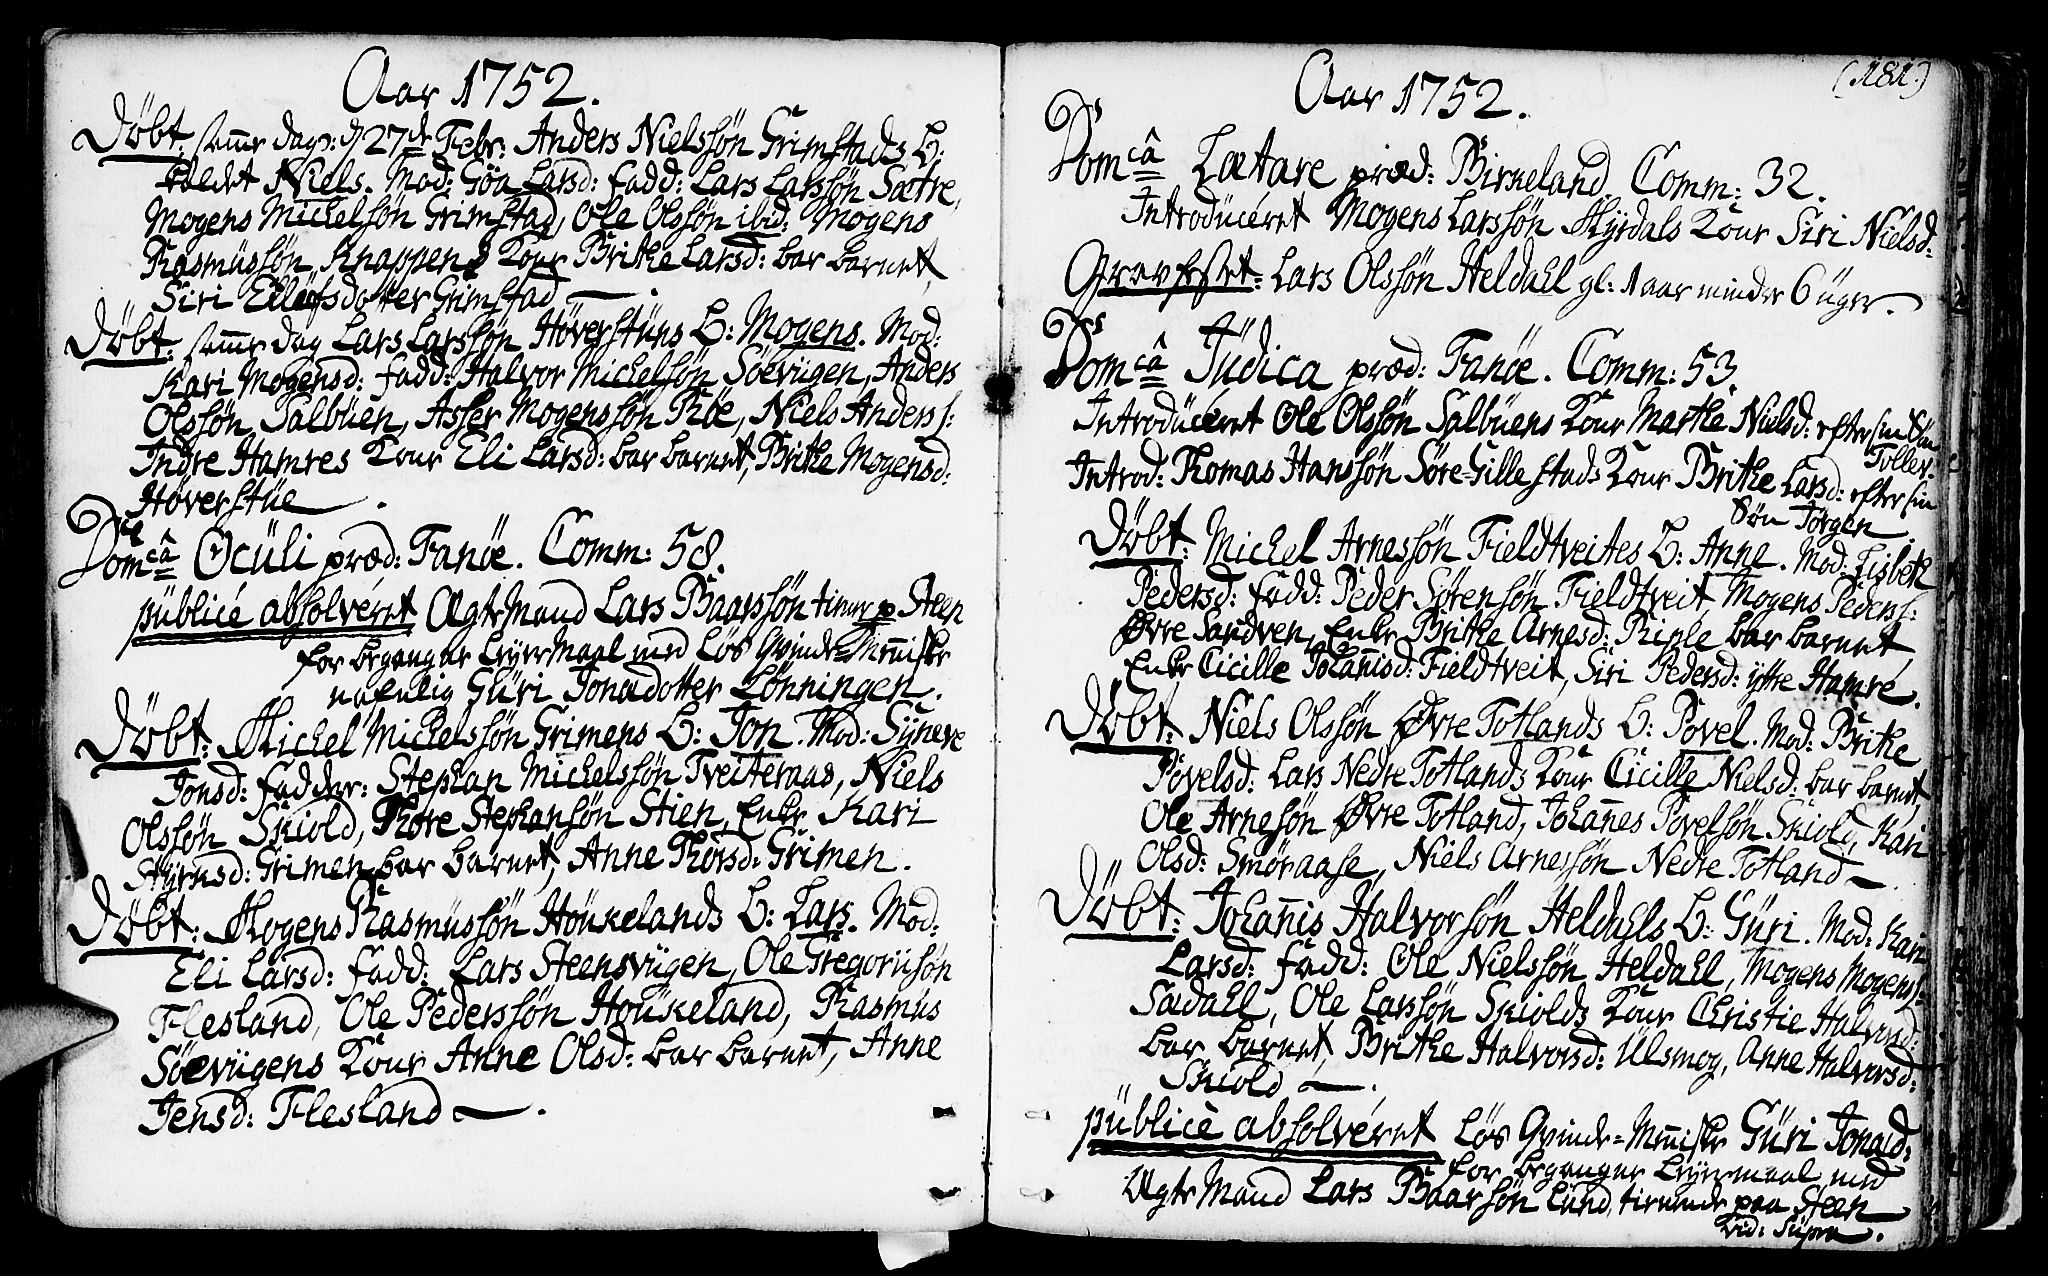 Aar 1752.
Döbt. samme dag: d 27de Febr: Anders Nielssön Grimstads b:
kaldet Niels. Mod: Göa Larsd: fadd: Lars Larssön Sætre,
Mogens Michelsön Grimstad, Ole Olssön ibid: Mogens
Rasmüssön Knappens Konr Brithe Larsd: bar barnet,
Siri Eilefsdotter Grimstad
Döbt: samme dag Lars Larssön Höverstüns b: Mogens. Mod:
Kari Mogensd: fadd: Halvor Michelsön Söevügen, Anders
Olssön Salbüen, Asser Mogenssön Röe, Niels Anderss:
Indre Hamres Konr Eli Larsd: bar barnet, Brithe Mogensd:
Höverstüe
Domcâ Ocüli præd: Fanöe. Comm: 58.
püblicé absolvéret Ægte Mand Lars Baarssön p Steen
for begangne Leyermaal med Lös Qvinde-Menniske
nafnlig Güri Jonadotter Lönningen.
Döbt: Michel Michelssön Grimens b: Jon. Mod: Syneve
Jonsd: fadder: Stephan Michelssön Tveiteraas, Niels
Olssön Skiold, Thore Stephansön Stien, Enke Kari
Styrnsd: Grimen bar barnet, Anne Thorsd: Grimen.
Döbt: Mogens Rasmüssön Höükelands b: Lars. Mod:
Eli Larsd: fadd: Lars Steensvügen, Ole Gregoriisön
Flesland, Ole Pederssön Höükeland, Rasmüs
Söevügens Konr Anne Olsd: bar barnet, Anne
Jensd: Flesland
Aar 1752.
(181.)
Domcâ Lætare præd: Birkeland. Comm: 32.
Introdücéret Mogens Larssön Myrdals Konr Siri Nielsd:
Gravfæstet: Lars Olssön Heldahl gl: 1 aar minder 6 üger.
Domcâ Jüdica præd: Fanöe. Comm: 53.
Introdücéret Ole Olssön Salbüens Konr Marthe Nielsd: efter sin Sön
Tollev.
Introd: Thomas Hanssön Söre-Gillestads Konr Brithe Larsd: efter sin
Sön Jörgen
Döbt: Michel Arnessön Fieldtveites b: Anne. Mod: Lisbeth
Pedersd: fadd: Peder Sörensön Fieldtveit, Mogens Pederss:
Øvre Sandven, Enke Brithe Arnesd: Riple bar barnet,
Enke Cicille Johannisd: Fieldtveit, Siri Pedersd: ytre Hamre.
Döbt: Niels Olssön Øvre Totlands b: Povel. Mod: Brithe
Povelsd: Lars Nedre Totlands Konr Cicille Nielsd: bar barnet,
Ole Arnesön Øvre Totland, Johannes Povelsön Skiold, Kari
Olsd: Smöraase, Niels Arnessön Nedre Totland
Döbt: Johannis Halvorsön Heldahls b: Güri. Mod: Kari
Larsd: fadd: Ole Nielssön Heldahl, Mogens Mogenss:
Sædahl, Ole Larssön Skiolds Konr Christie Halvorsd:
bar barnet, Brithe Halvorsd: Ülsmog, Anne Halvorsd:
Skiold
püblicè absolvéret Lös Qvinde-Menniske Güri Jonasd:
for begangne Leyermaal med
Ægte Mand Lars Baarsön Lünd, tienende paa Steen
vid: Süpra.